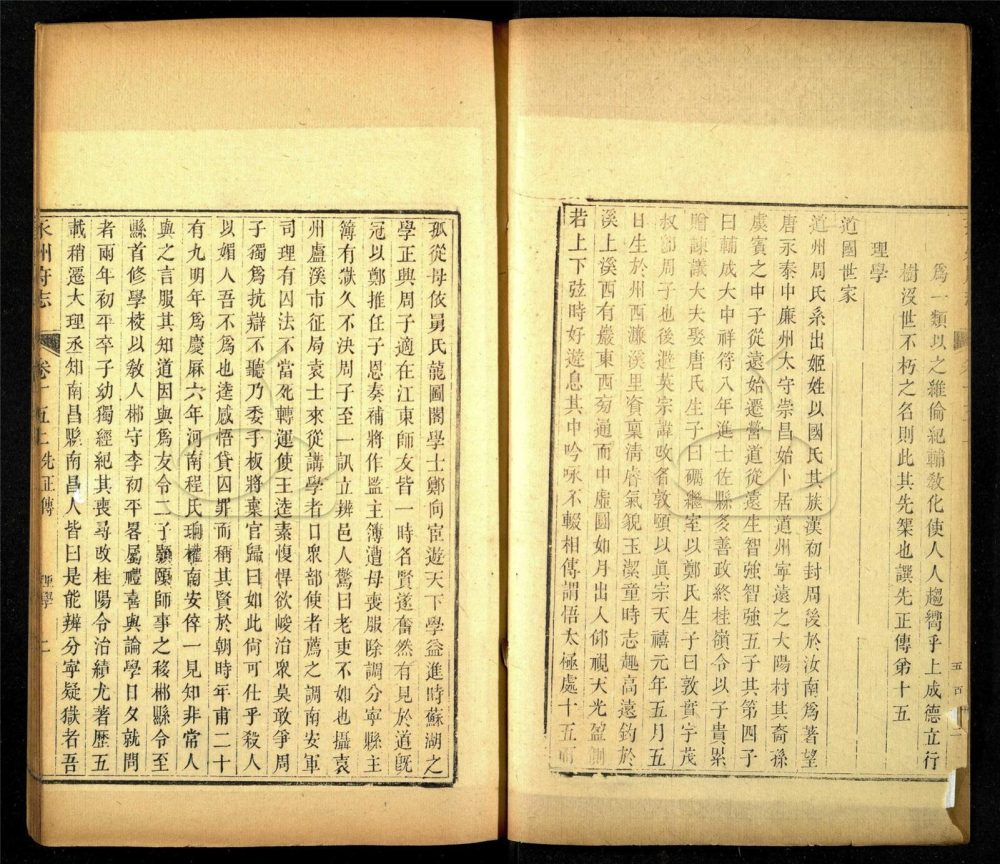 爲一類以之維倫紀輔敎化使人人趨嚮乎上成德立行
樹沒世不朽之名則此其先榘也譔先正傳弟十五
理學
道國世家
道州周氏系出姬姓以國氏其族漢初封周後於汝南爲著望
唐永泰中廉州太守崇昌始卜居道州寧遠之大陽村其裔孫
虞賓之中子從遠始遷營道從遠生智強智強五子其第四子
曰輔成大中祥符八年進士佐縣多善政終桂嶺令以子貴累
贈諫議大夫娶唐氏生子曰礪繼室以鄭氏生子曰敦實字茂
叔卽周子也後避英宗諱改名敦頤以眞宗天禧元年五月五
日生於州西濂溪里資稟淸睿氣貌玉潔童時志趣高遠釣於
溪上溪西有巖東西旁通而中虛圓如月出入仰視天光盈則
若上下弦時好遊息其中吟咏不輟相傳謂悟太極處十五而
孤從母依舅氏龍圖閣學士鄭向宦遊天下學益進時蘇湖之
學正與周子適在江東師友皆一時名賢遂奮然有見於道旣
冠以鄭推任子恩奏補將作監主簿遭母喪服除調分寧縣主
簿有獄久不決周子至一訊立辨邑人驚曰老吏不如也攝袁
州盧溪市征局袁士來從講學者口眾部使者薦之調南安軍
司理有囚法不當死轉運使王逵素愎悍欲峻治眾莫敢爭周
子獨爲抗辯不聽乃委手板將棄官歸曰如此尙可仕乎殺人
以媚人吾不爲也逵感悟貸囚罪而稱其賢於朝時年甫二十
有九明年爲慶厤六年河南程氏珦權南安倅一見知非常人
與之言服其知道因與爲友令二子顥頤師事之移郴縣令至
縣首修學校以敎人郴守李初平畧屬禮喜與論學日夕就問
者兩年初平卒子幼獨經紀其喪尋改桂陽令治績尤著歷五
載稍遷大理丞知南昌縣南昌人皆曰是能辨分寧疑獄者吾
永州府志
卷十五上先正傳
理學
二